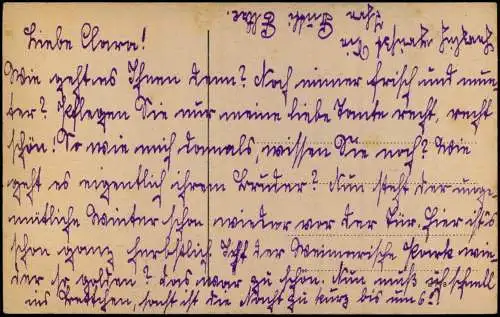 Liebe Clara!
Wie geht es Ihnen denn? Noch immer frisch und mun-
ter? Pflegen Sie nur meine liebe Tante recht, recht
schön! So wie mich damals, wissen Sie noch? Wie
geht es eigentlich ihrem Bruder? Nun steht der unge-
mütliche Winter schon wieder vor der Tür. Hier ists
schon ganz herbstlich. Ist der Weimarische Park wie-
der so golden? Das war zu schön. Nun muß ich schnell
ins Bettchen, sonst ist die Nacht zu kurz bis um 6.
Herzlich grüßt Sie
Ihre